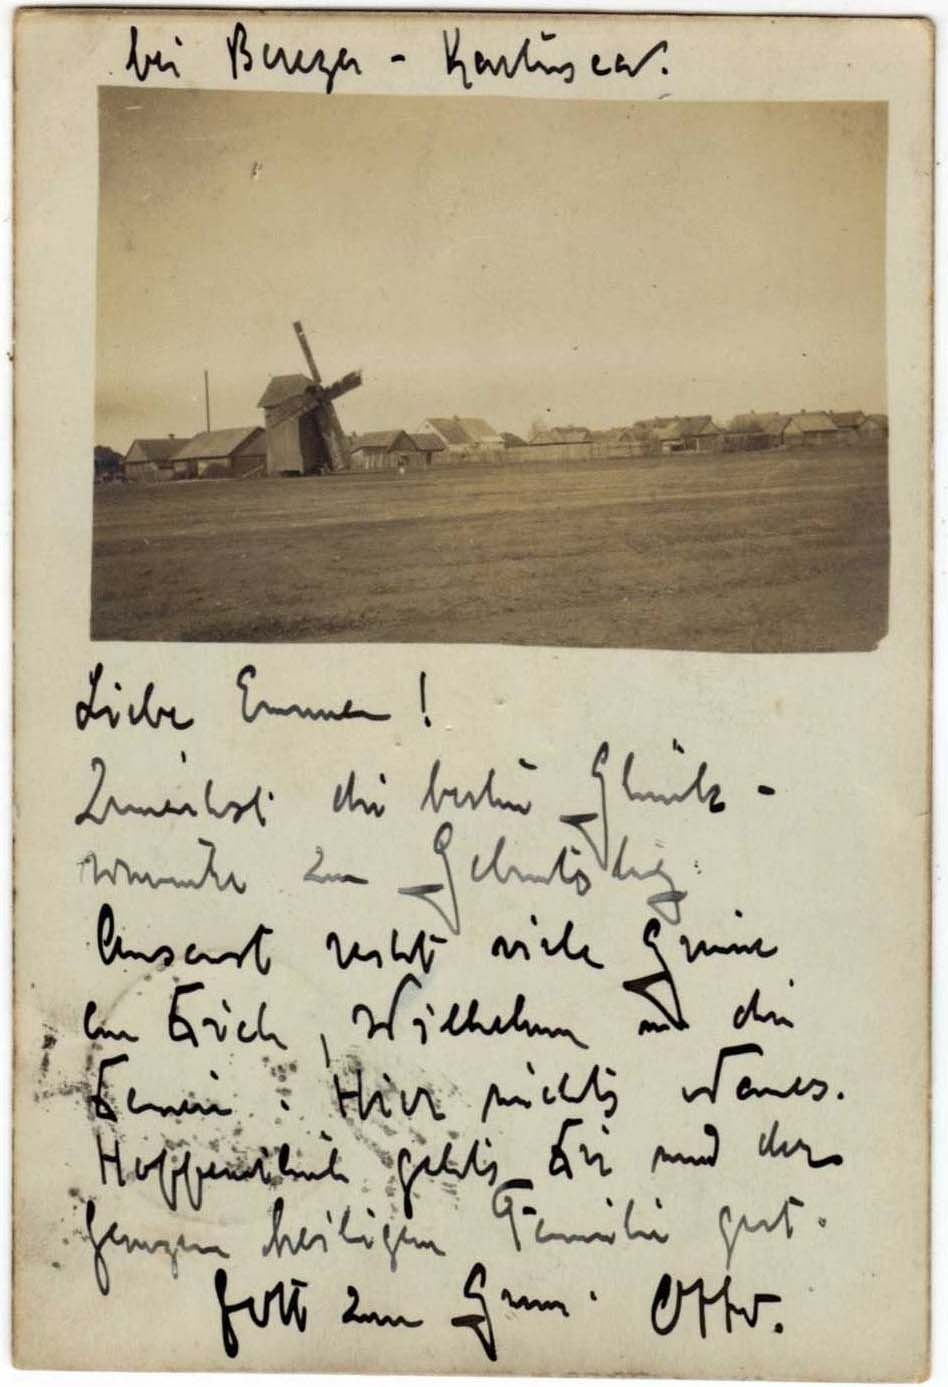 bei Bereza - Kartuska.
Liebe Emma!
Zunächst die besten Glück-
wünsche zum Geburtstag.
Ansonst recht viele Grüsse
an Erich, Wilhelm und die
Hier nichts Neues.
Hoffentlich gehts Dir und der
ganzen heiligen Familie gut.
Gott zum Gruss. Otto.